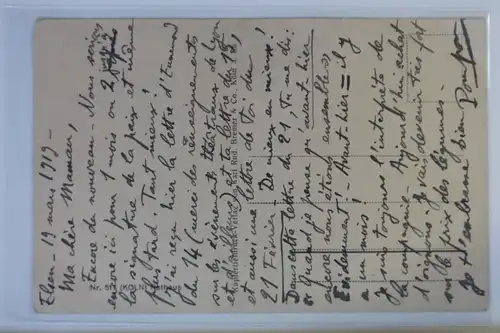 Elsen - 19 mars 1919 -
Ma chère Maman,
Encore du nouveau - Nous serions
encore ici pour 1 mois ou 2 jusqu'à
la signature de la paix et même
plus tard. Tant mieux !
J'ai reçu hier la lettre d'Emmond
du 14 (merci des renseignements
sur les différents théâtraux de Lyon
et et ta lettre du 15,
et aussi une lettre de toi du
21 Février - De mieux en mieux !
Dans cette lettre du 21, tu me dis :
"Quand je pense qu'avant-hier
encore nous étions ensembles,
Evidemment ! - Avant-hier = il y
a un mois !
Je suis toujours l'interprète de
la compagnie - Aujourd'hui achat
d'oignons : Je vais devenir très fort
sur le prix des légumes -
Je t'embrasse bien Poupon
Kunstanstalt Karl Rud. Bremer & Co. Köln
Nr. 551 (KÖLN) Rathaus